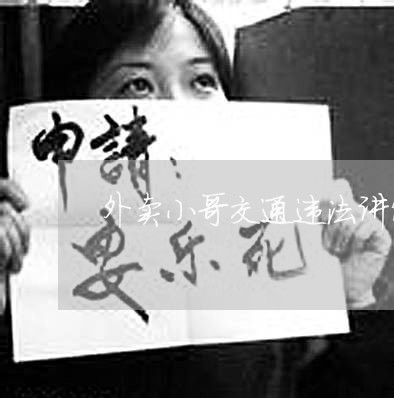 申請：
外卖小哥交通违法讲
要乐死